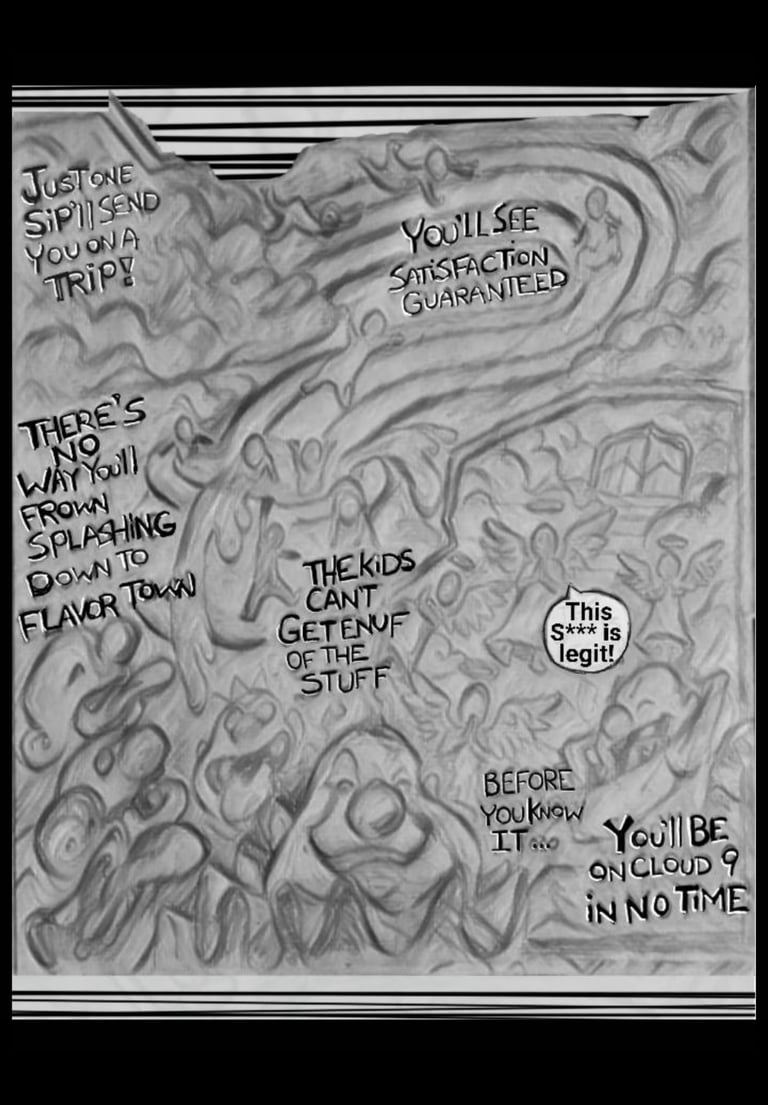 JUST ONE
SiP'll SEND
YOU ON A
TRiP!
YOU'LL SEE
SATiSFACTION
GUARANTEED
THERE'S
NO
WAY YOU'll
FROWN
SPLASHiNG
DOWN TO
FLAVOR TOWN
THE KiDS
CAN'T
GET ENUF
OF THE
STUFF
This
S*** is
legit!
BEFORE
YOU KNOW
IT...
YOU'll BE
ON CLOUD 9
iN NO TiME